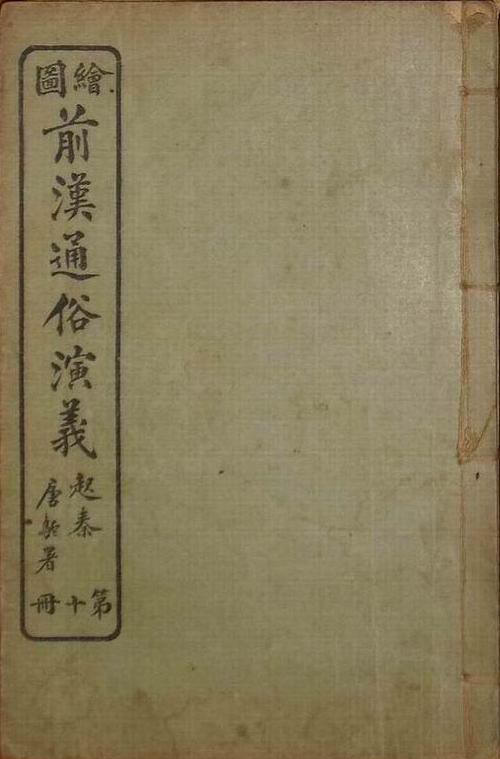 繪圖
前漢通俗演義
起秦
唐駝署
第十冊